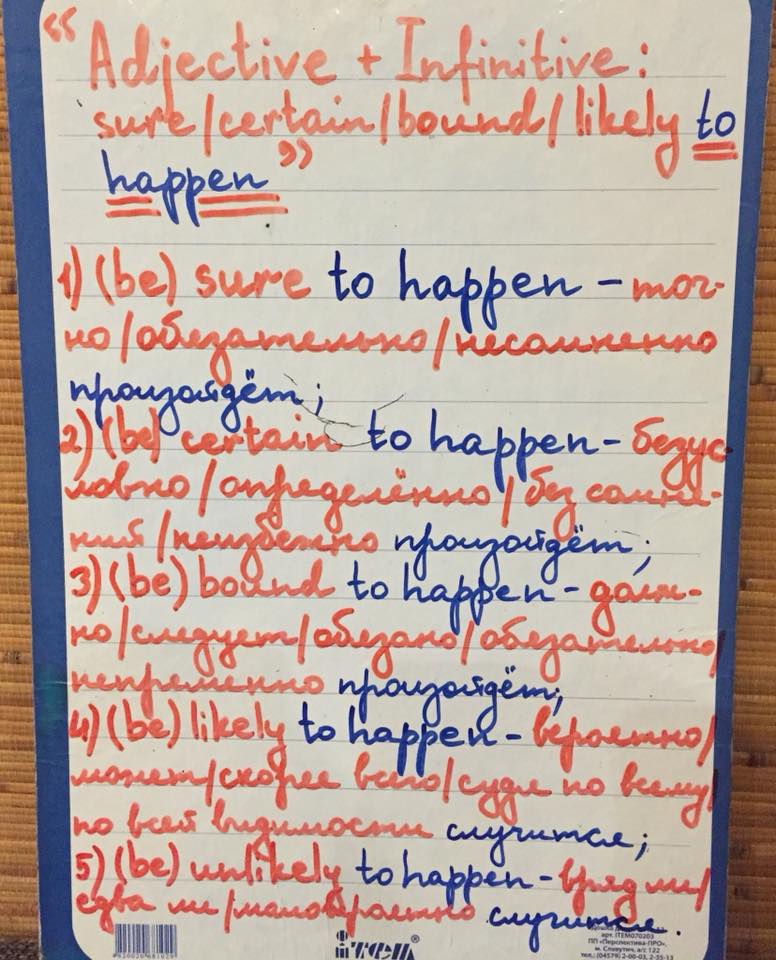 “Adjective + Infinitive:
sure/certain/bound/likely to
happen”
1) (be) sure to happen – точ-
но/обязательно/несомненно
произойдёт;
2) (be) certain to happen – безус-
ловно/определённо/без сомне-
ний/неизбежно произойдёт;
3) (be) bound to happen – долж-
но/следует/обязано/обязательно/
непременно произойдёт;
4) (be) likely to happen – вероятно/
может/скорее всего/судя по всему/
по всей видимости случится;
5) (be) unlikely to happen – вряд ли/
едва ли/маловероятно случится.
арт. ITEM070203
ПП «Перспектива-ПРО»,
м. Славутич, а/с 122
тел.: (04579) 2-00-03, 2-55-13
iтем®